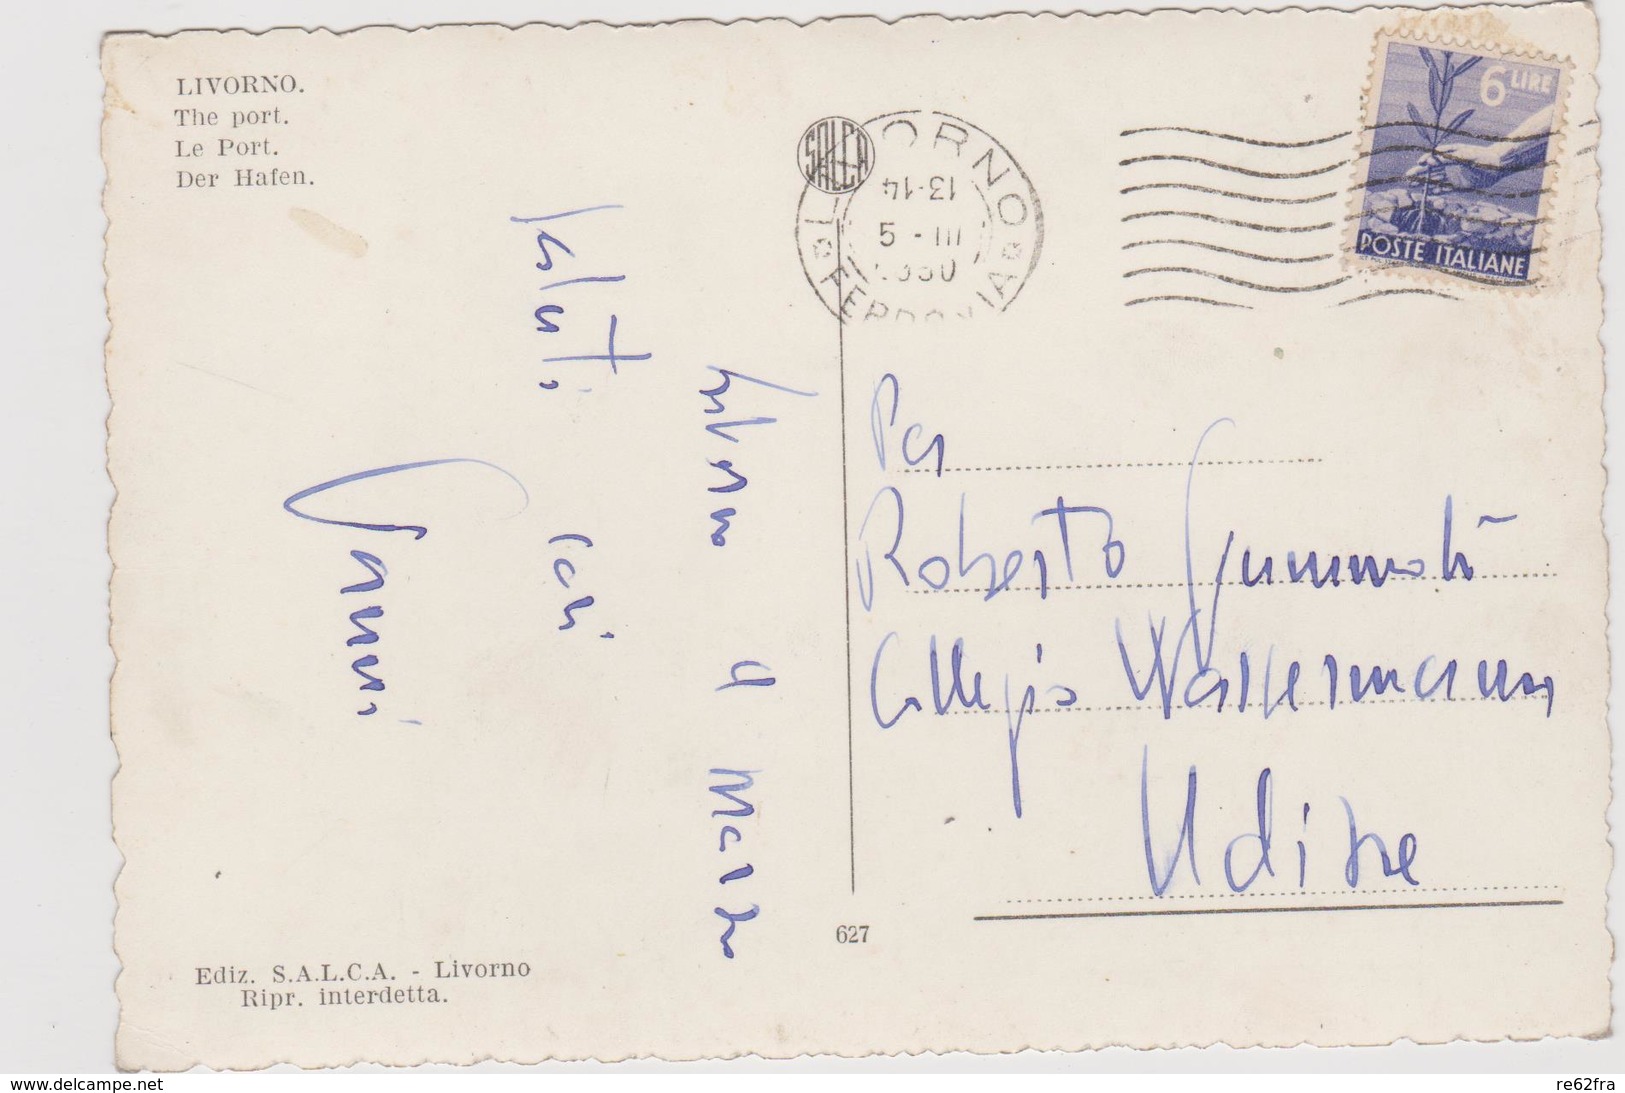 LIVORNO.
The port.
Le Port.
Der Hafen.
SALCA
LIVORNO
13-14
5 - III
FERROVIA
6 LIRE
POSTE ITALIANE
Livorno 4 Marzo
Saluti
cari
Vanni
Per
Roberto
Collegio Wassermann
Udine
627
Ediz. S.A.L.C.A. - Livorno
Ripr. interdetta.
www.delcampe.net
re62fra